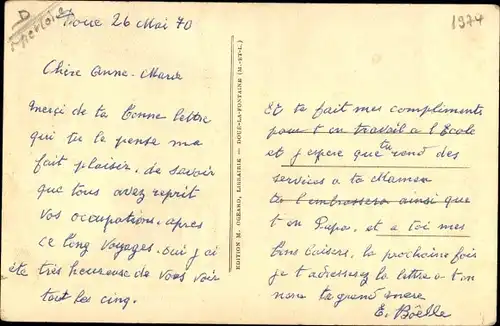 D
1974
Doue 26 Mai 70
Chère Anne-Marie
Merçi de ta bonne lettre
qui tu le pense ma
fait plaisir. de savoir
que tous avez reprit
vos occupations. apres
ce long voyages. oui j'ai
été très heureuse de vous voir
tout les cinq.
EDITION M. OGEARD, LIBRAIRIE - DOUE-LA-FONTAINE (M.-ET-L.)
Et te fait mes compliments
pour t on travail a l Ecole
et j espere que tu rend des
services a ta Maman
tu l'embrassera ainsi que
t on Papa. et a toi mes
bons baisers. la prochaine fois
je t adresserez la lettre a t on
nom ta grand mere
E. Bôelle